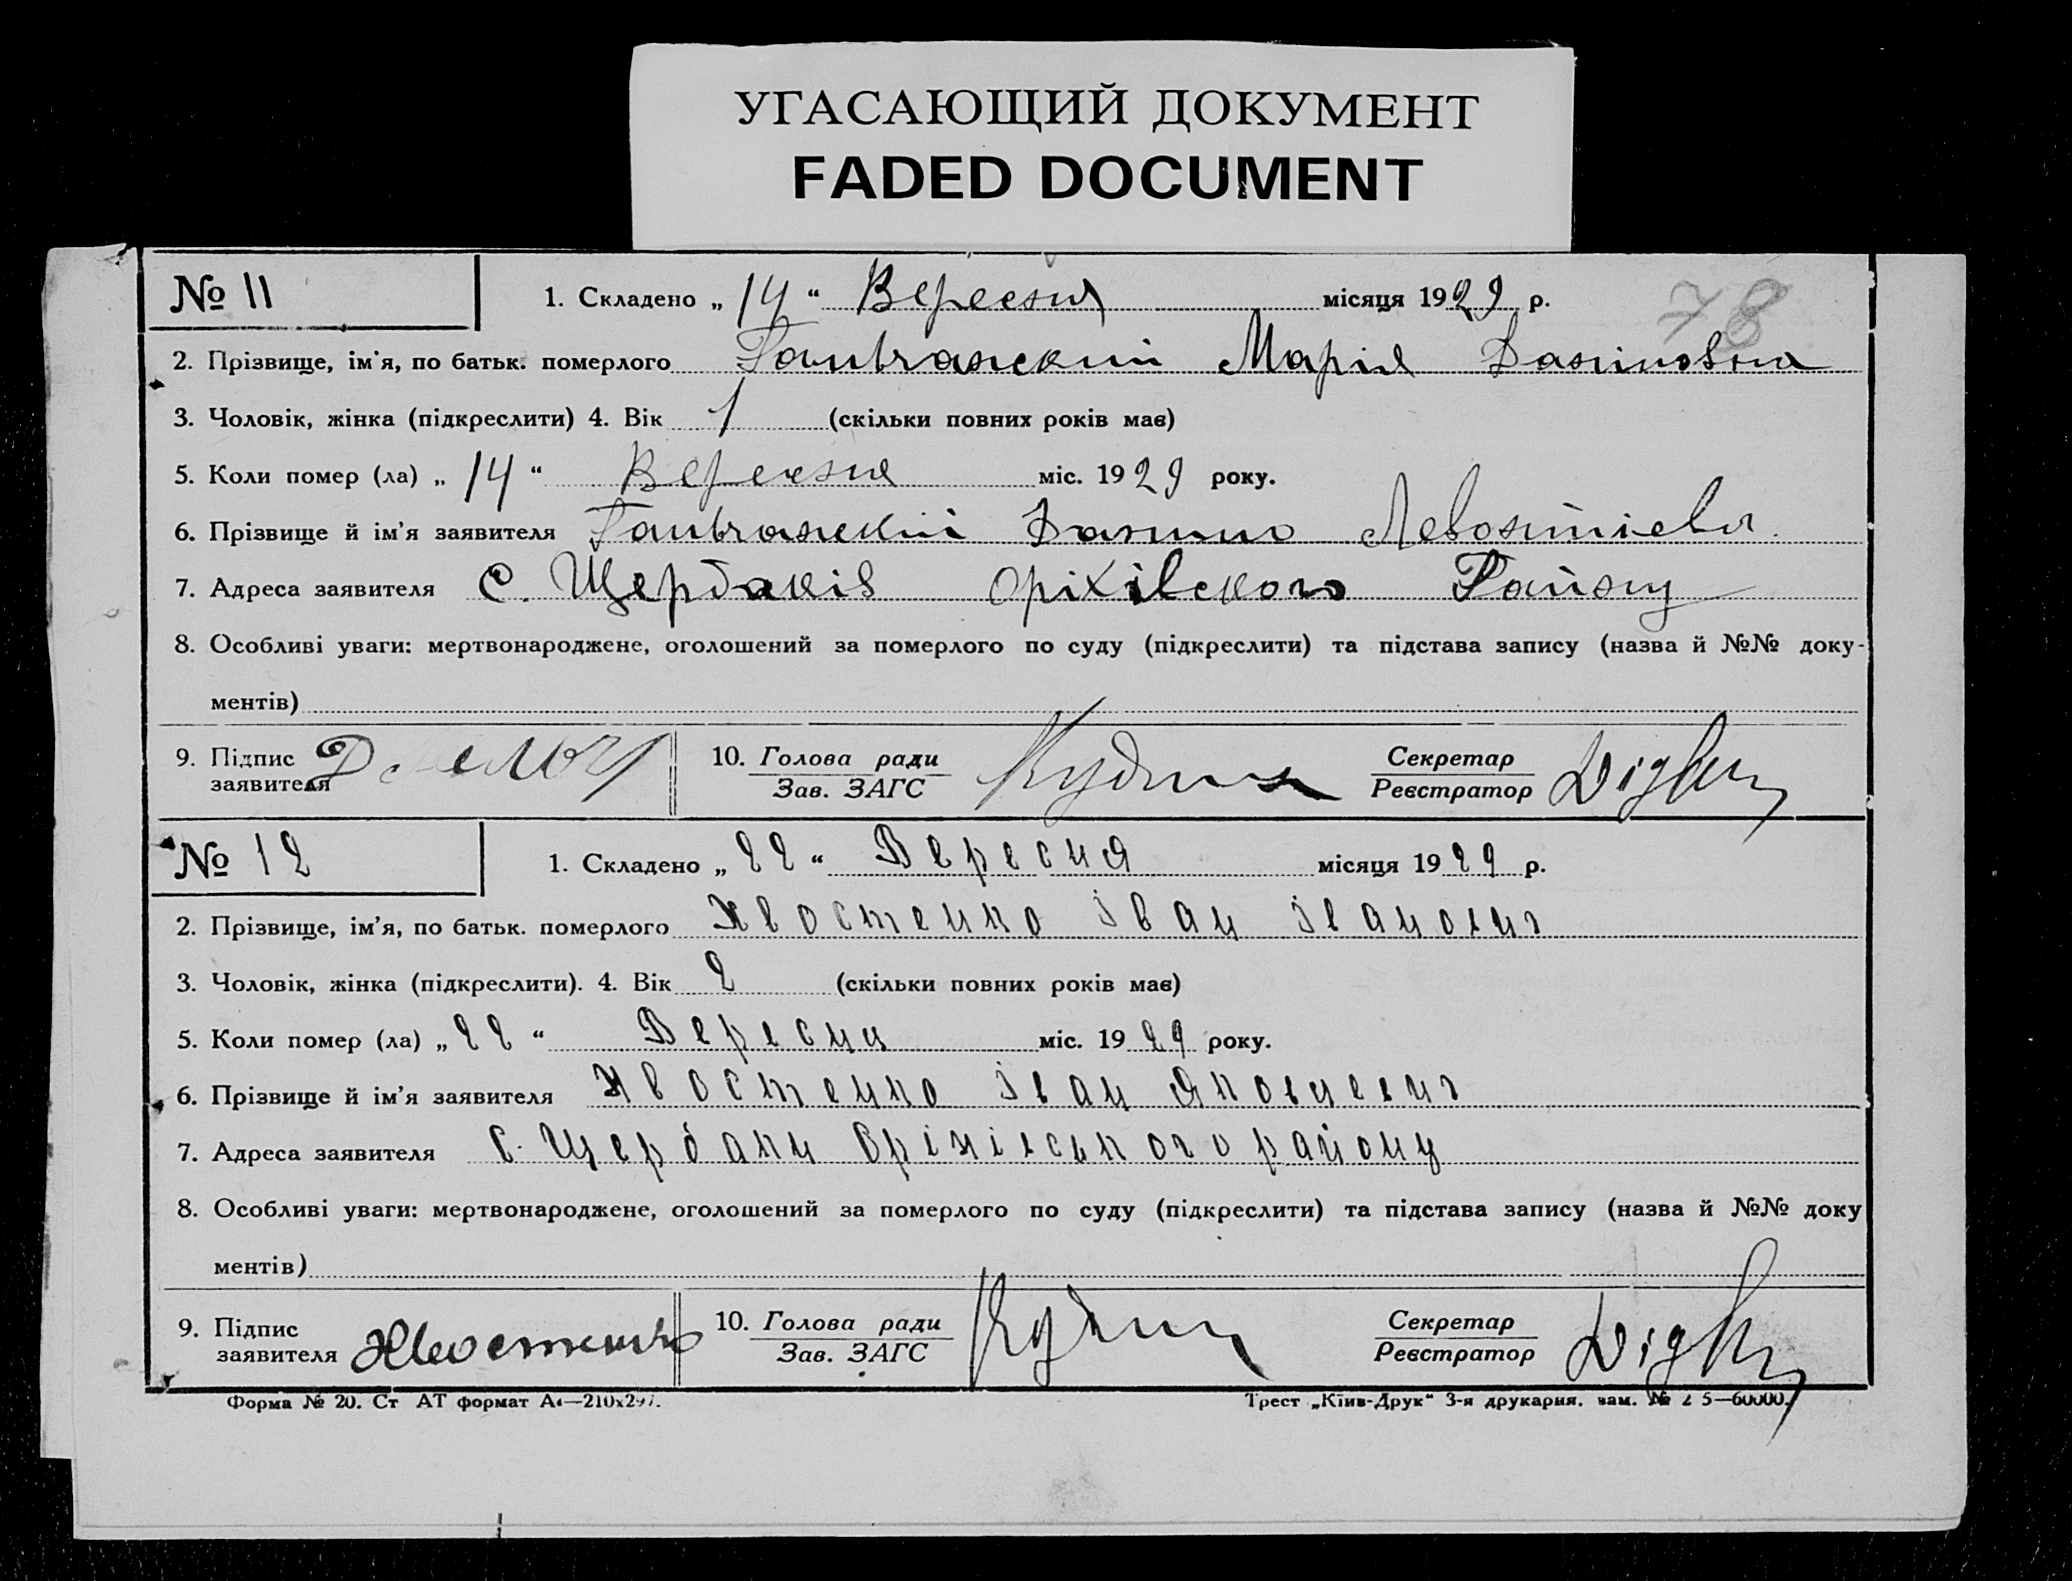 УГАСАЮЩИЙ ДОКУМЕНТ
FADED DOCUMENT
78
№ 11 1. Складено „ 14 “ Вересня місяця 1929 р.
2. Прізвище, ім'я, по батьк. померлого Марія Даниловна
3. Чоловік, жінка (підкреслити) 4. Вік 1 (скільки повних років має)
5. Коли помер (ла) „ 14 “ Вересня міс. 1929 року.
6. Прізвище й ім'я заявителя Данило
7. Адреса заявителя С. Щербаків Оріхівского Району
8. Особливі уваги: мертвонароджене, оголошений за померлого по суду (підкреслити) та підстава запису (назва й №№ доку-
ментів)
9. Підпис заявителя 10. Голова ради Зав. ЗАГС Секретар Реєстратор
№ 12 1. Складено „ 22 “ Вересня місяця 1929 р.
2. Прізвище, ім'я, по батьк. померлого Хвостенко Іван Іванович
3. Чоловік, жінка (підкреслити). 4. Вік 2 (скільки повних років має)
5. Коли помер (ла) „ 22 “ Вересня міс. 1929 року.
6. Прізвище й ім'я заявителя Хвостенко Іван Яковлевич
7. Адреса заявителя С. Щербаки Оріхівського району
8. Особливі уваги: мертвонароджене, оголошений за померлого по суду (підкреслити) та підстава запису (назва й №№ доку
ментів)
9. Підпис заявителя Хвостенко 10. Голова ради Зав. ЗАГС Секретар Реєстратор
Форма № 20. Ст АТ формат А4—210х297. Трест „Київ-Друк“ 3-я друкарня. зам. №